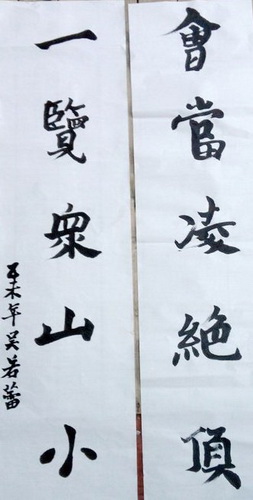 會當凌絶頂
一覽衆山小
未年吴若蕾